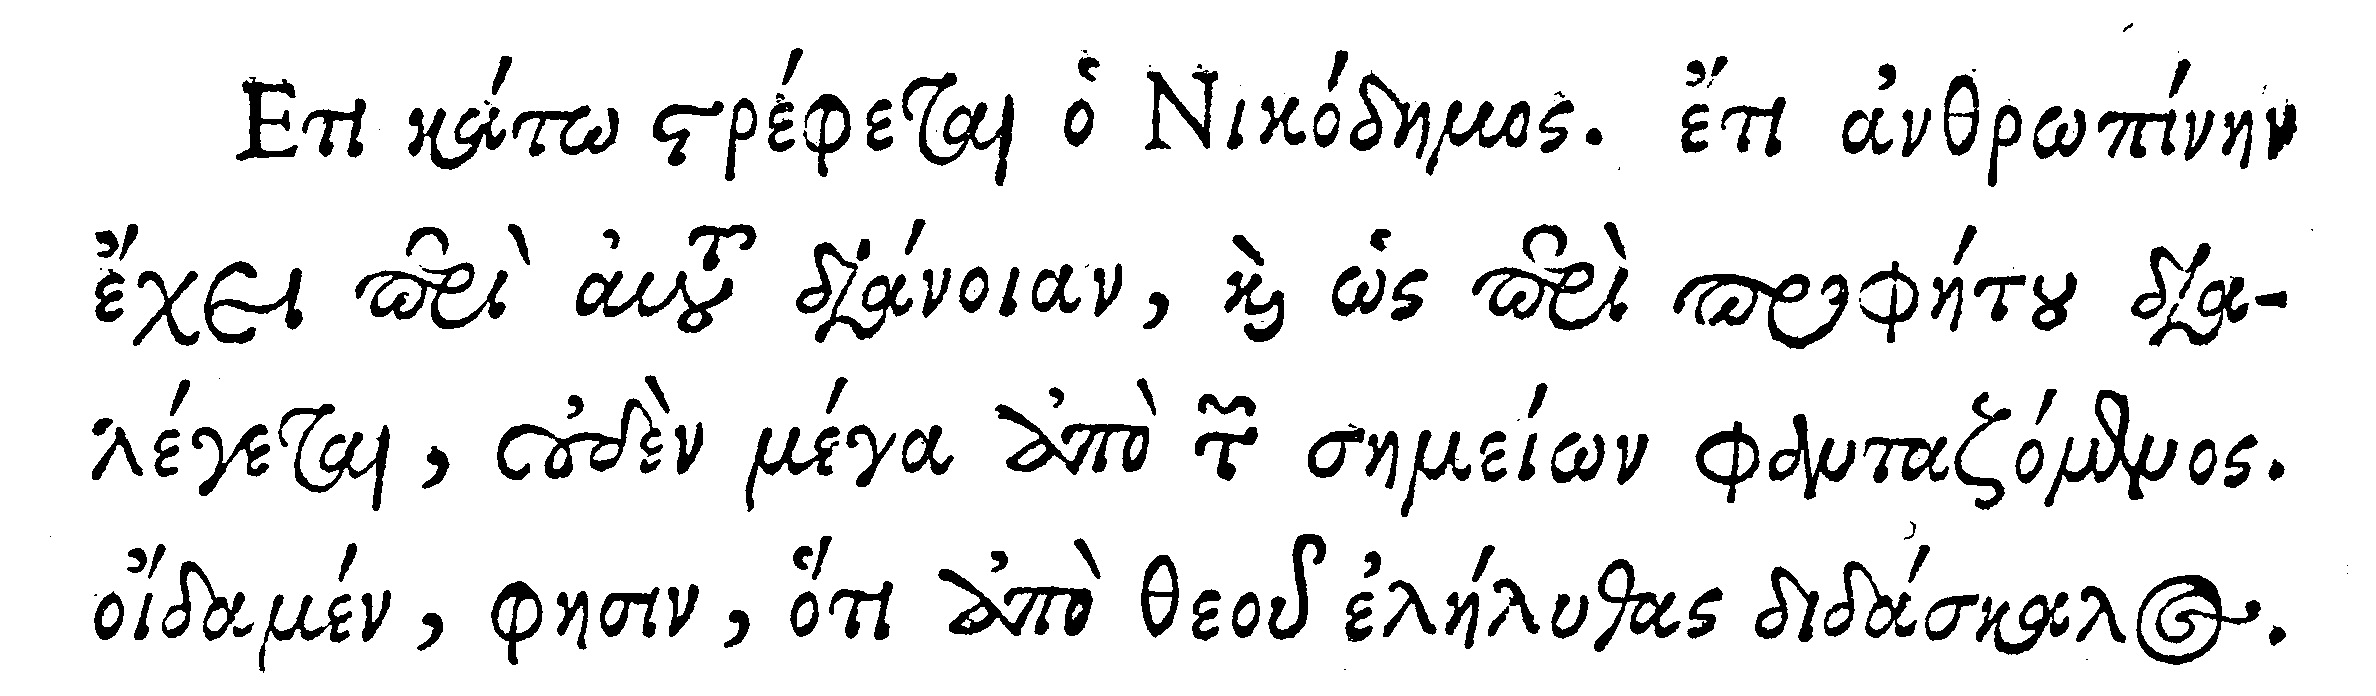 Ετι κάτω στρέφεται ὁ Νικόδημος. ἔτι ἀνθρωπίνην
ἔχει περὶ αὐτοῦ διάνοιαν, καὶ ὡς περὶ προφήτου δια-
λέγεται, οὐδὲν μέγα ἀπὸ τῶν σημείων φανταζόμενος.
οἴδαμέν, φησιν, ὅτι ἀπὸ θεοῦ ἐλήλυθας διδάσκαλος.